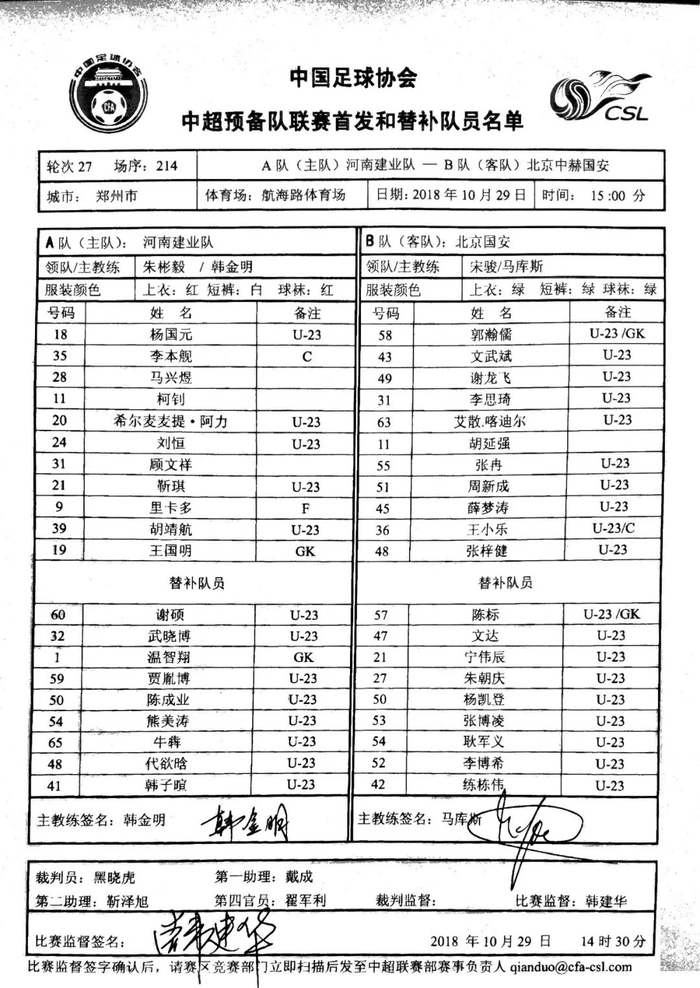 中国足球协会
CFA
中国足球协会
中超预备队联赛首发和替补队员名单
CSL
轮次 27 场序: 214 A 队（主队）河南建业队 — B 队（客队）北京中赫国安
城市: 郑州市 体育场: 航海路体育场 日期: 2018 年 10 月 29 日 时间: 15:00 分
A 队（主队）: 河南建业队 B 队（客队）: 北京国安
领队/主教练 朱彬毅 / 韩金明 领队/主教练 宋骏/马库斯
服装颜色 上衣: 红 短裤: 白 球袜: 红 服装颜色 上衣: 绿 短裤: 绿 球袜: 绿
号码 姓 名 备注 号码 姓 名 备注
18 杨国元 U-23 58 郭瀚儒 U-23 /GK
35 李本舰 C 43 文武斌 U-23
28 马兴煜 49 谢龙飞 U-23
11 柯钊 31 李思琦 U-23
20 希尔麦麦提·阿力 U-23 63 艾散.喀迪尔 U-23
24 刘恒 U-23 11 胡延强
31 顾文祥 55 张冉 U-23
21 靳琪 U-23 51 周新成 U-23
9 里卡多 F 45 薛梦涛 U-23
39 胡靖航 U-23 36 王小乐 U-23/C
19 王国明 GK 48 张梓健 U-23
替补队员 替补队员
60 谢硕 U-23 57 陈标 U-23 /GK
32 武晓博 U-23 47 文达 U-23
1 温智翔 GK 21 宁伟辰 U-23
59 贾胤博 U-23 27 朱朝庆 U-23
50 陈成业 U-23 50 杨凯登 U-23
54 熊美涛 U-23 53 张博凌 U-23
65 牛犇 U-23 54 耿军义 U-23
48 代欲晗 U-23 52 李博希 U-23
41 韩子暄 U-23 42 练栋伟 U-23
主教练签名: 韩金明 韩金明 主教练签名: 马库斯
裁判员: 黑晓虎 第一助理: 戴成
第二助理: 靳泽旭 第四官员: 翟军利 裁判监督: 比赛监督: 韩建华
比赛监督签名: 韩建华 2018 年 10 月 29 日 14 时 30 分
比赛监督签字确认后，请赛区竞赛部门立即扫描后发至中超联赛部赛事负责人 qianduo@cfa-csl.com